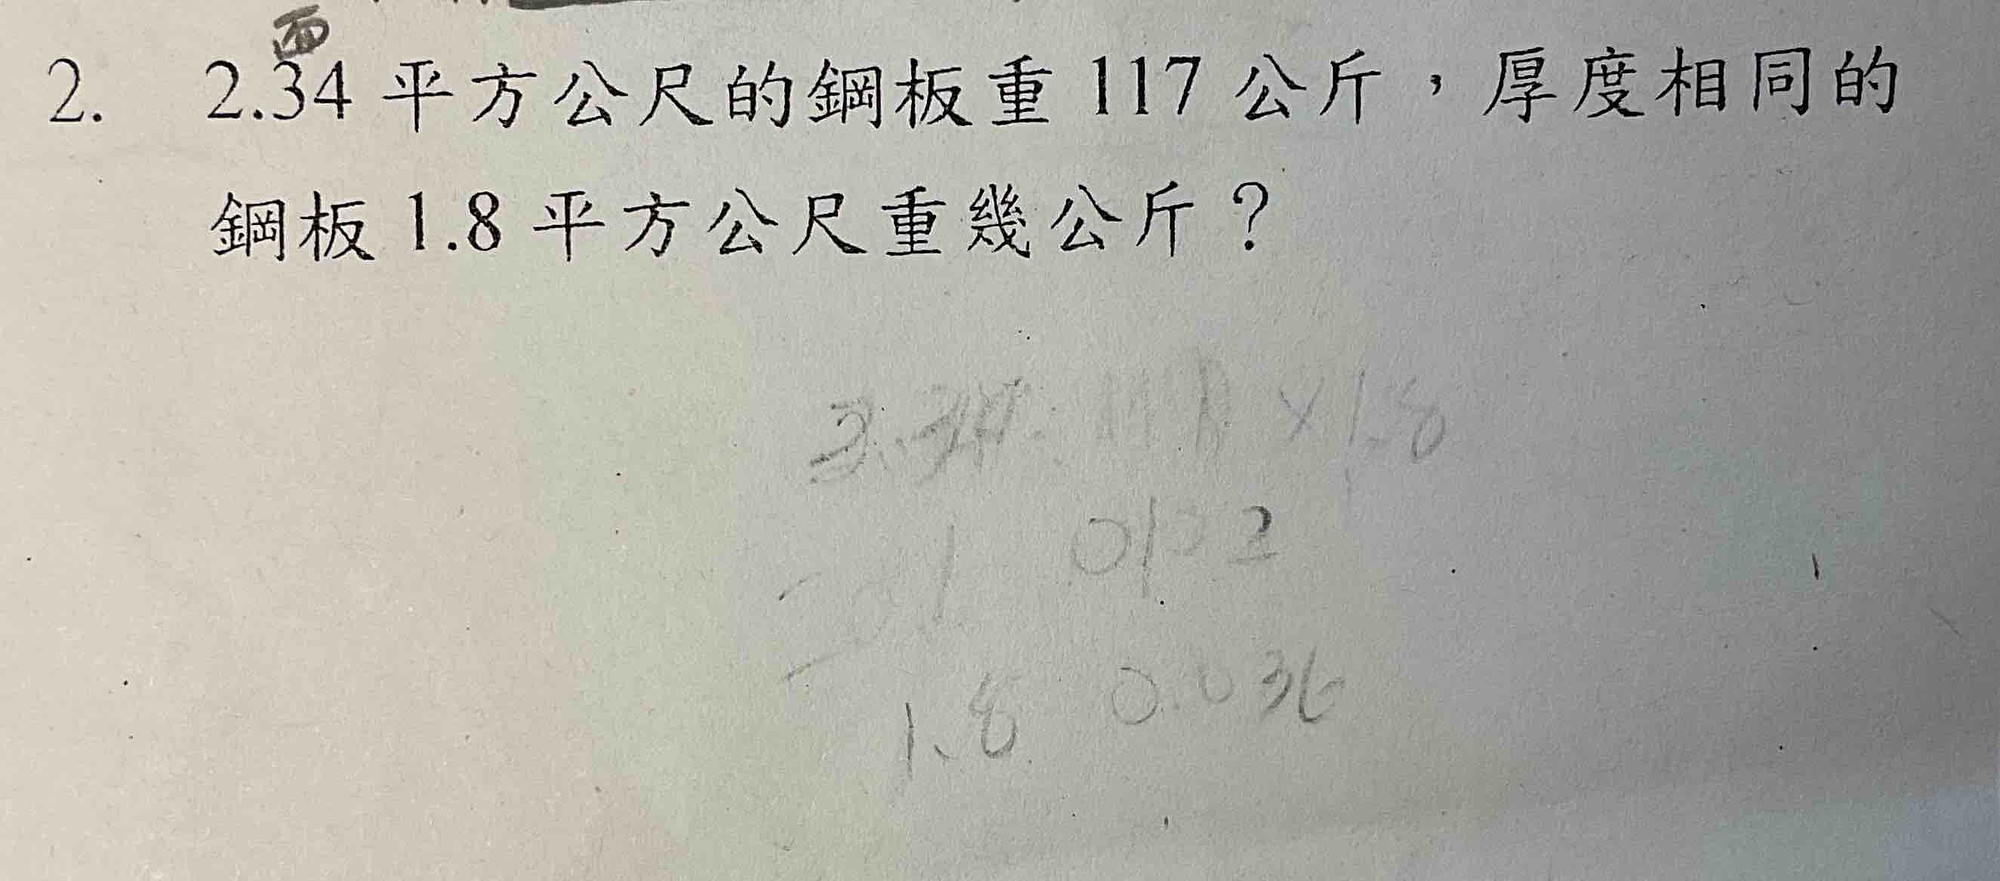 面
2. 2.34 平方公尺的鋼板重 117 公斤，厚度相同的
鋼板 1.8 平方公尺重幾公斤？
×1.8
1.8 0.036